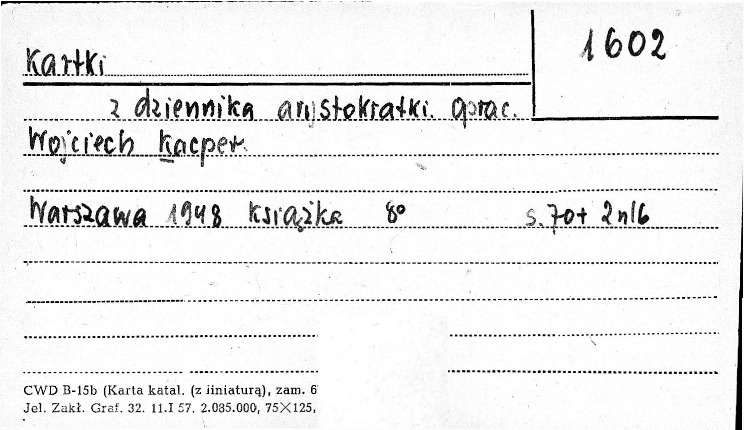 1602
Kartki
z dziennika arystokratki. oprac.
Wojciech Kacper.
Warszawa 1948 Książka 8° s. 70+ 2 nlb
CWD B-15b (Karta katal. (z liniaturą), zam. 6
Jel. Zakł. Graf. 32. 11.I 57. 2.085.000, 75×125,